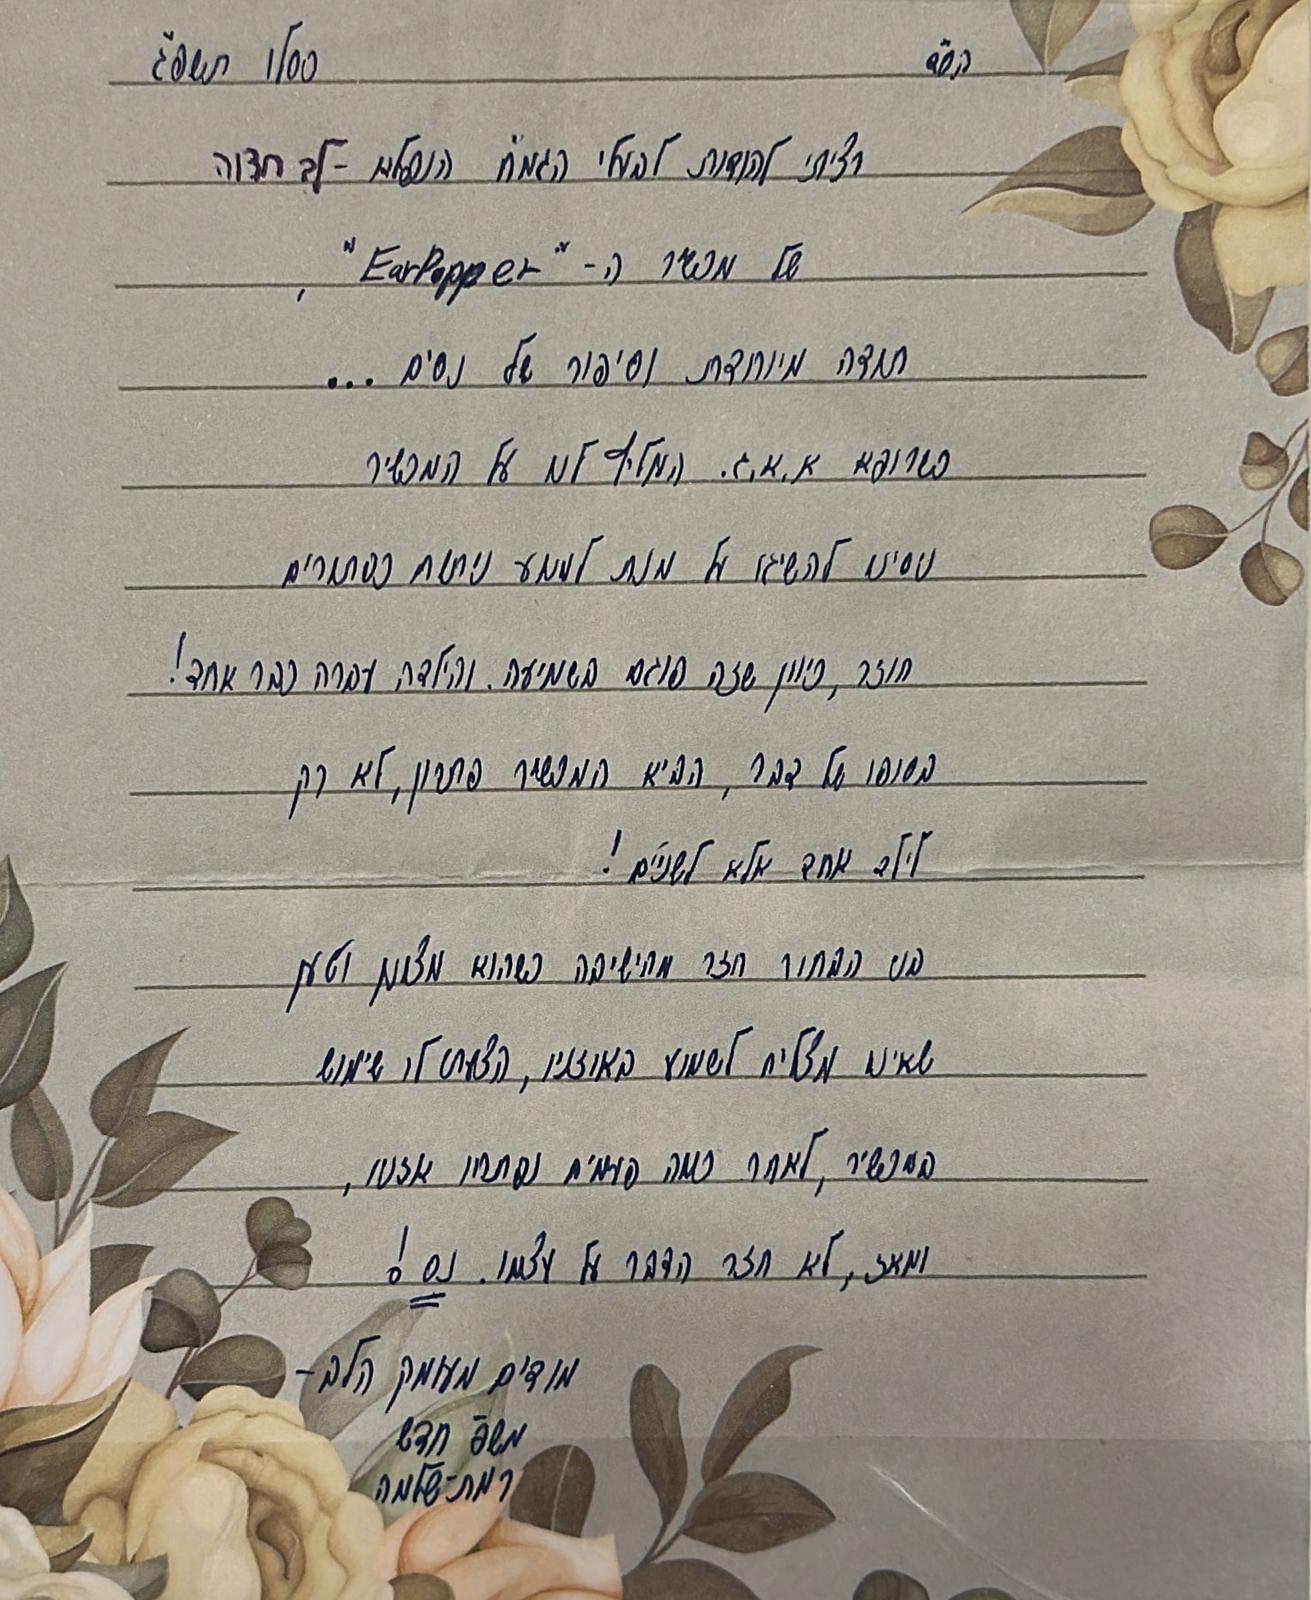 בס"ד
כסלו תשפ"ג
רציתי להודות לבעלי הגמ"ח הנפלא - לב חדוה
של מכשיר ה- "EarPopper",
תודה מיוחדת וסיפור של נסים...
כשרופא א.א.ג. המליץ לנו על המכשיר
ניסינו להשיגו על מנת למנוע ניתוח כפתורים
חוזר, כיוון שזה פוגם בשמיעה. והילדה עברה כבר אחד!
בסופו של דבר, הביא המכשיר פתרון, לא רק
לילד אחד אלא לשניים!
בני הבחור חזר מהישיבה כשהוא מצונן וטען
שאינו מצליח לשמוע באוזניו, הצעתי לו שימוש
במכשיר, לאחר כמה פעמים נפתחו אזניו,
ומאז, לא חזר הדבר על עצמו. נס!
מודים מעומק הלב-
משפ' חדש
רמת-שלמה